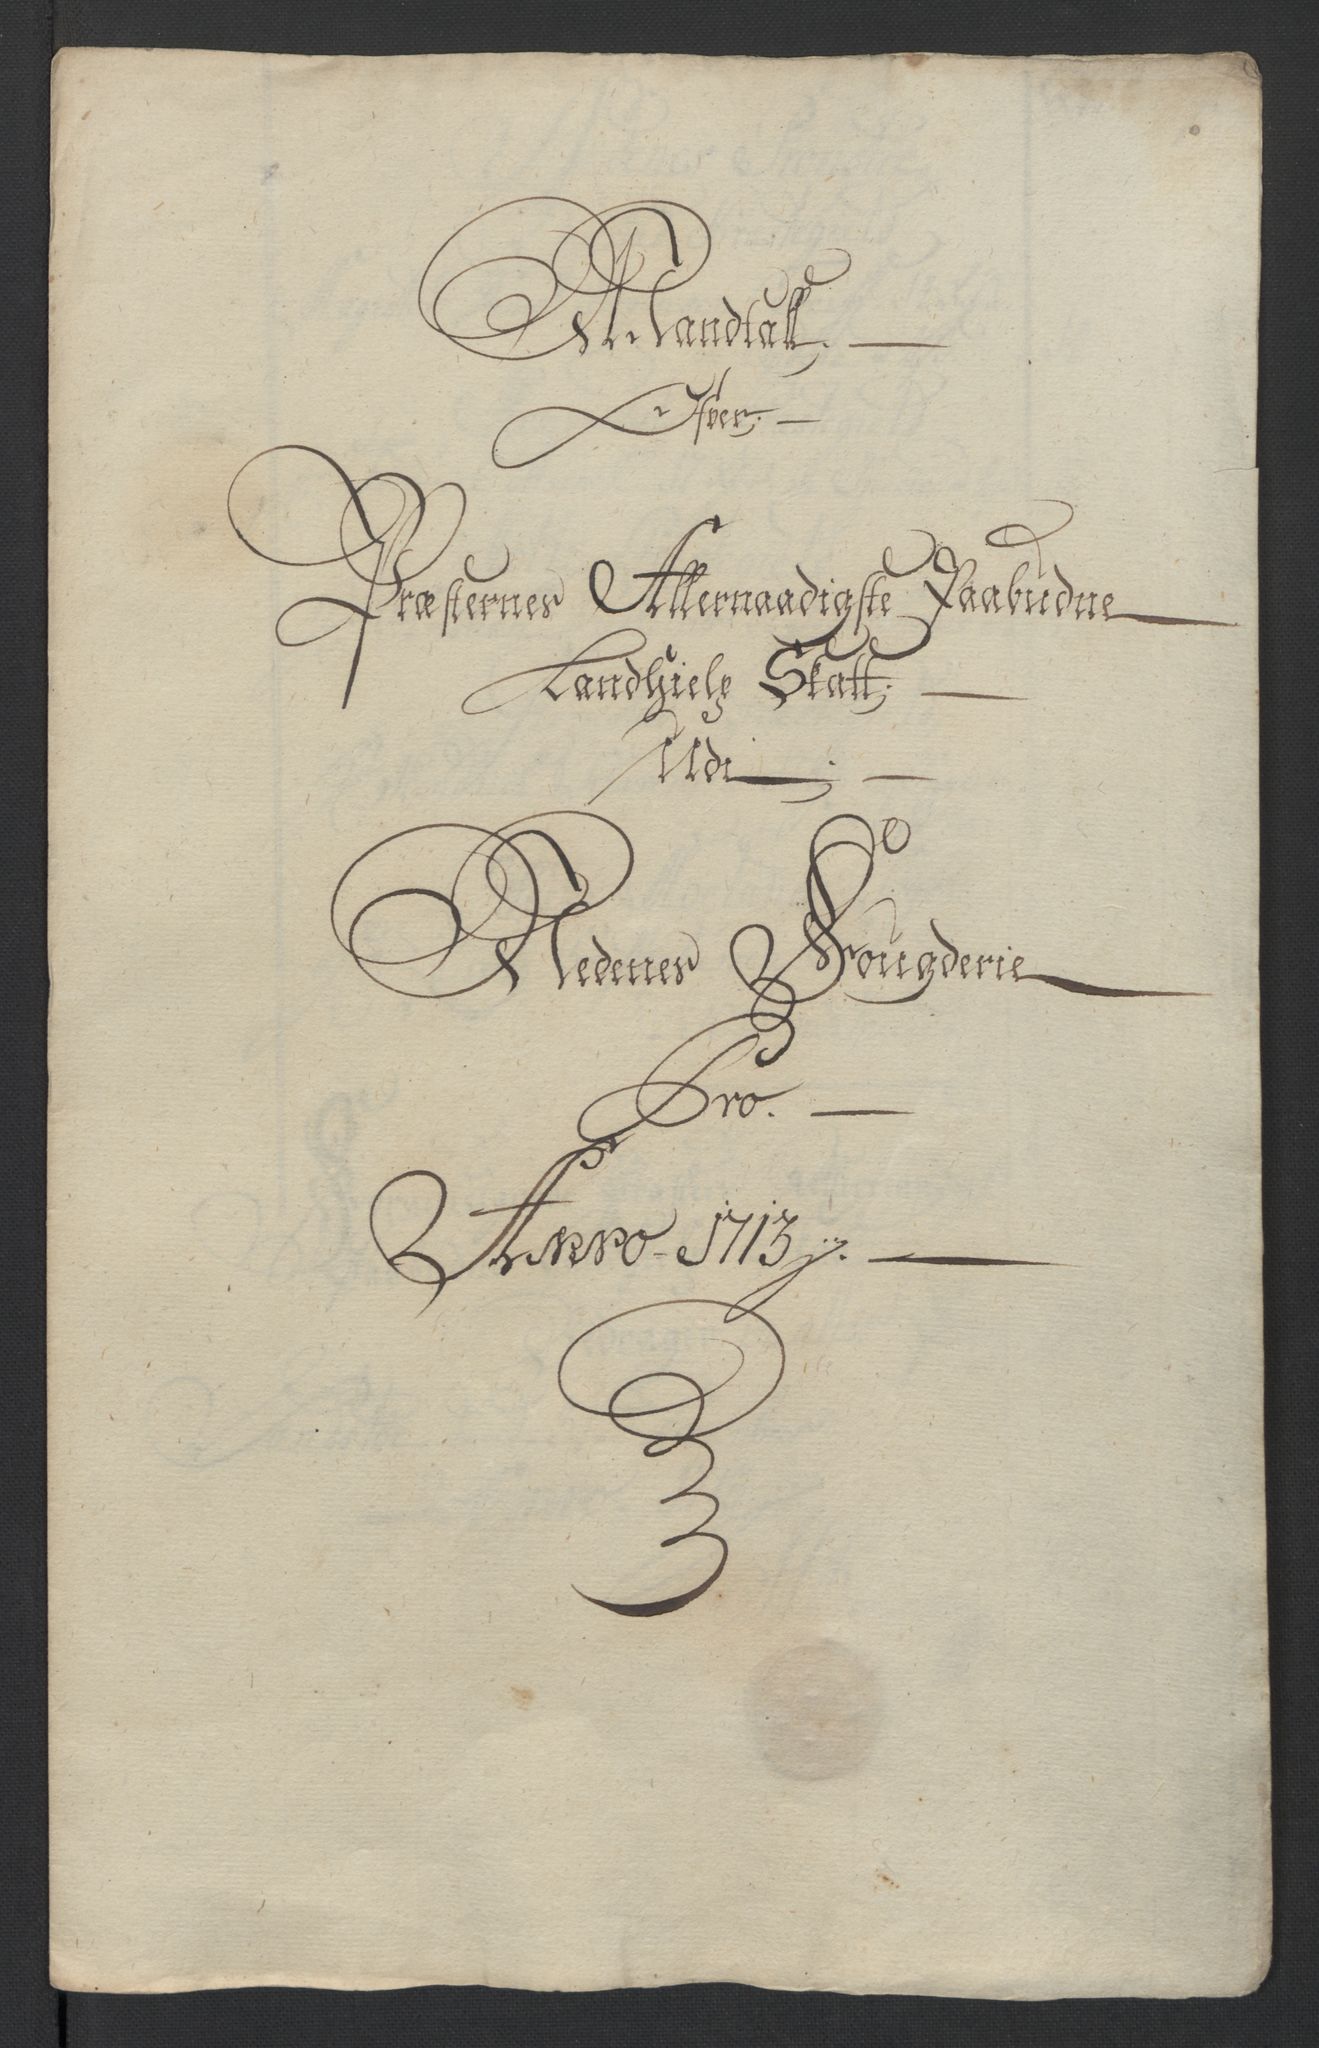 Mandtall.
Ofver.
Præsternes Allernaadigste Paabudne
Landhielp Skatt.
Udi
Nedenes Fougderie
Pro.
Anno 1713